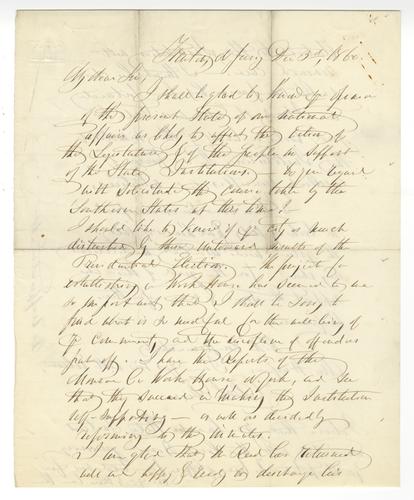 Dec 3d, 1860.
My dear Sir,
I shall be glad to know yr opinion
of the present State of our national
affairs as likely to affect the action of
the Legislature & of the people in support
of the State Institutions. Do you regard
with solicitude the course taken by the
Southern States at this time?
I should like to know if yr city is much
disturbed by these untoward results of the
Presidential Election. - The project for
establishing a Work House has seemed to me
so important that I shall be sorry to
find what is so needful for the well being of
yr community and the of offenders
put off. I have the Reports of the
Monroe Co Work House at and see
that they succeed in making the Institution
self-supporting - as well as decidedly
reforming to the inmates.
I am glad that the Read has returned
well and happy & ready to discharge his